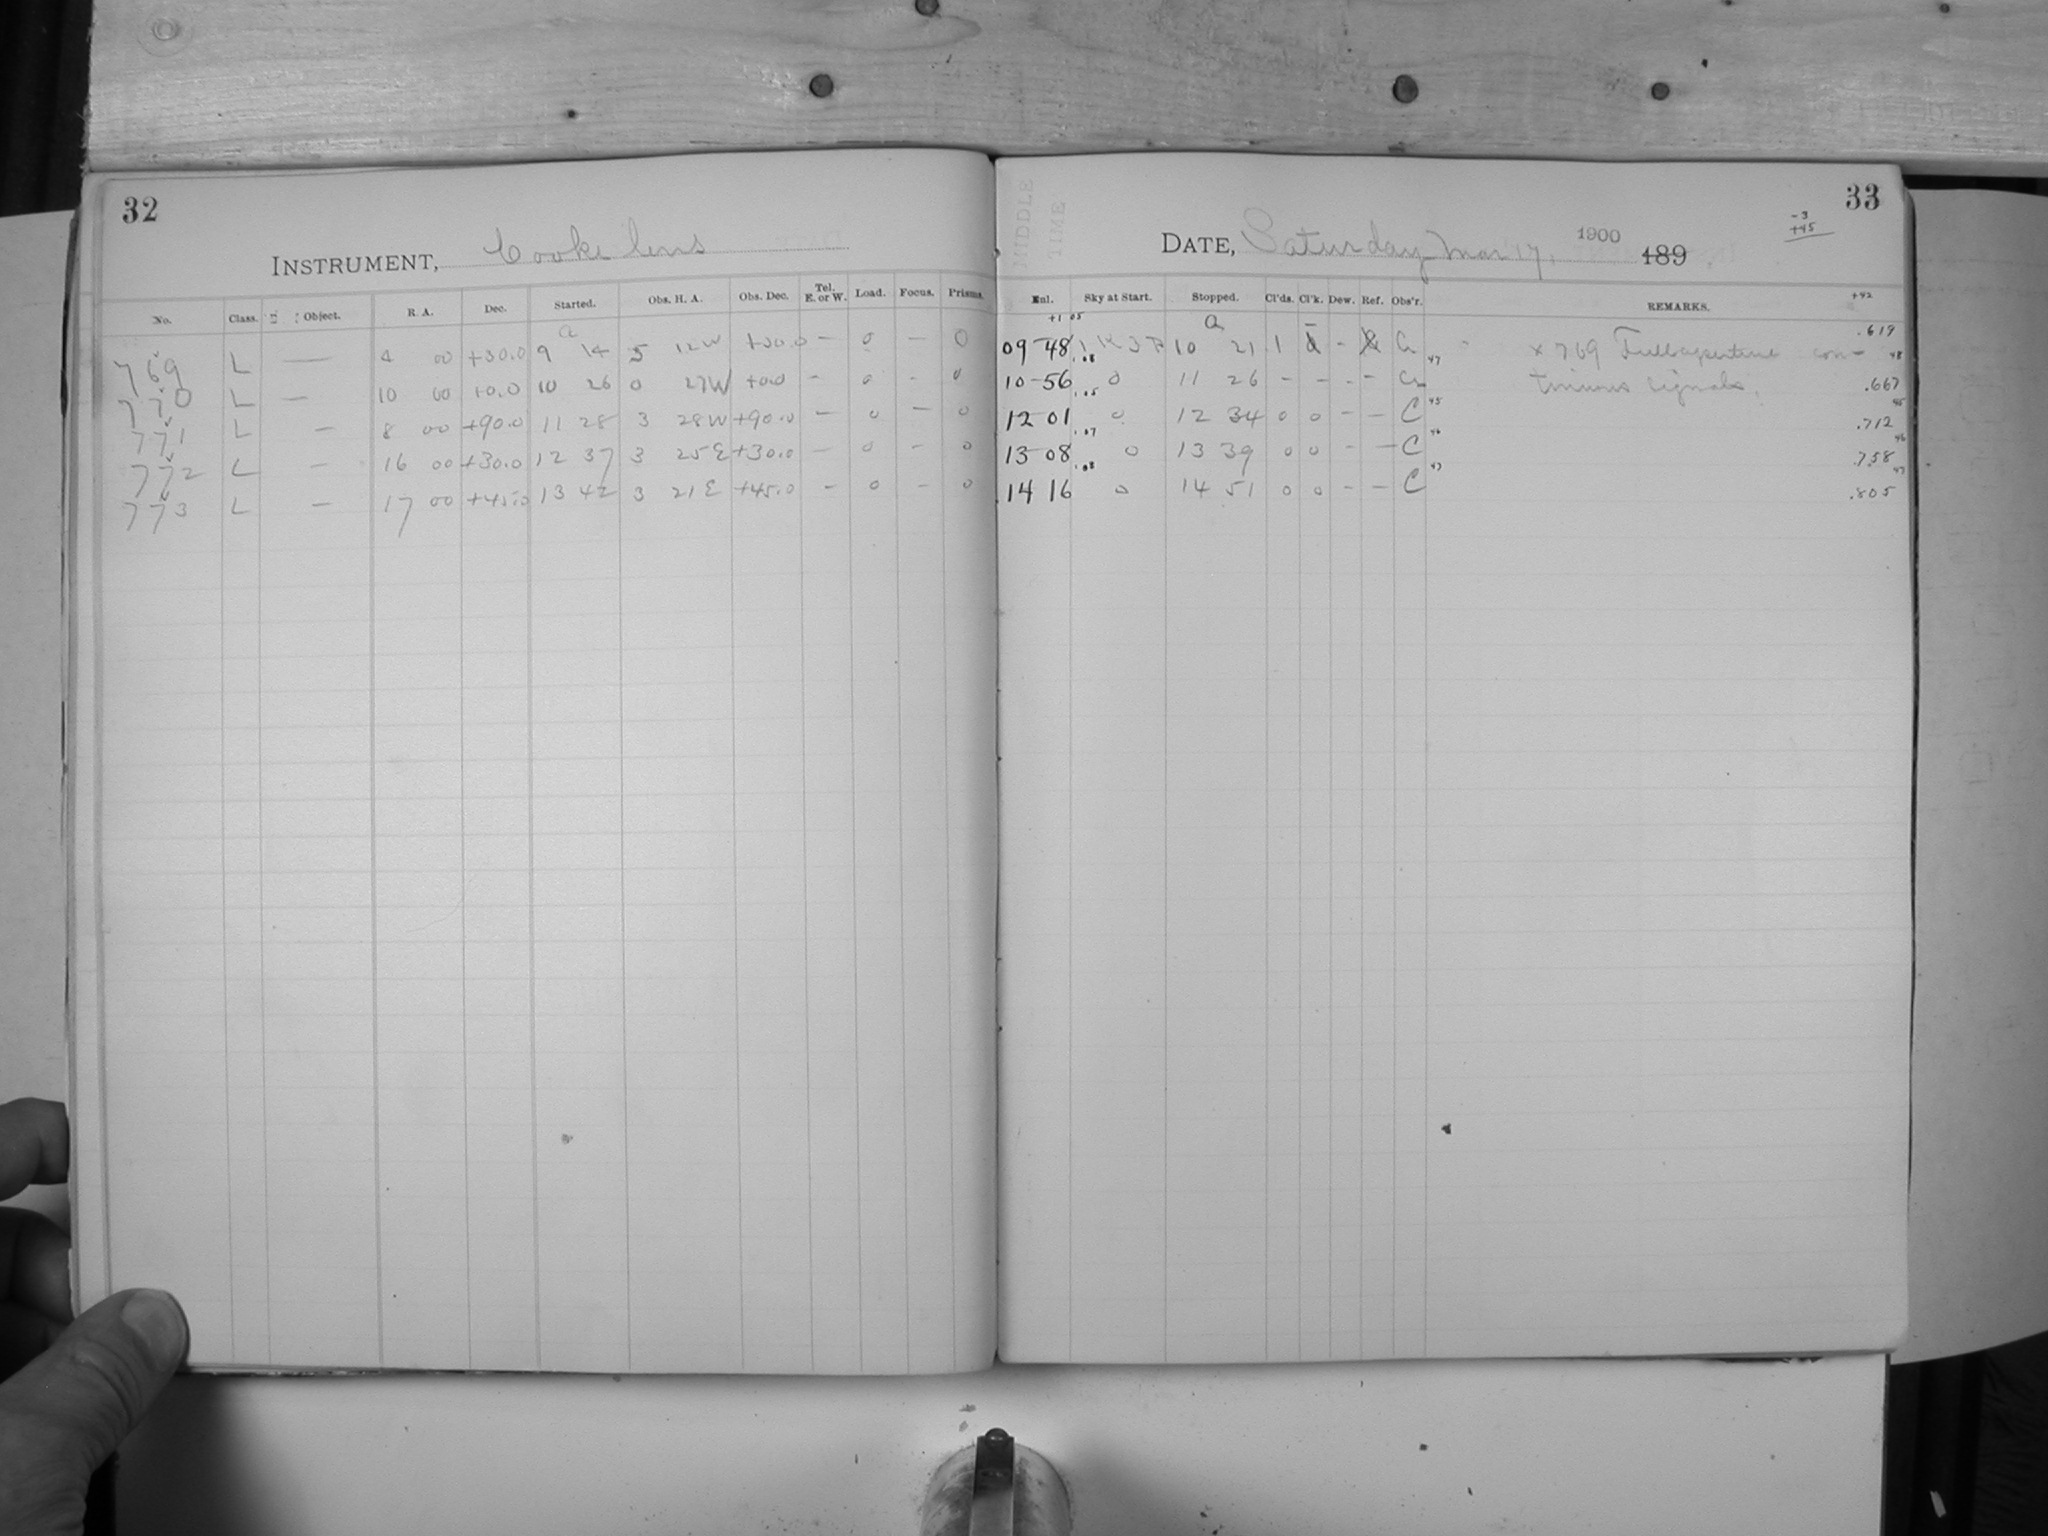 32
INSTRUMENT, Cooke lens
No. Class. Object. R. A. Dec. Started. Obs. H. A. Obs. Dec. Tel. E. or W. Load. Focus. Prisms.
a
769 L — 4 00 +30.0 9 14 5 12W +30.0 — 0 — 0
770 L — 10 00 +0.0 10 26 0 27W +0.0 — 0 - 0
771 L — 8 00 +90.0 11 28 3 28W +90.0 — 0 — 0
772 L — 16 00 +30.0 12 37 3 25E +30.0 — 0 - 0
773 L — 17 00 +45.0 13 42 3 21E +45.0 - 0 - 0
MIDDLE TIME
33
-3
+45
DATE, Saturday Mar 17, 1900 189
Enl. Sky at Start. Stopped. Cl'ds. Cl'k. Dew. Ref. Obs'r. REMARKS. +42
+1 05 a
09-48 10 21 1 - × 769 Full aperture con- .619
.08 47 48
10-56 0 11 26 - - - - tinuous signals. .667
.05 45 45
12-01 0 12 34 0 0 - - C .712
.07 46 46
13-08 0 13 39 0 0 - - C .758
.08 47 47
14 16 0 14 51 0 0 - - C .805